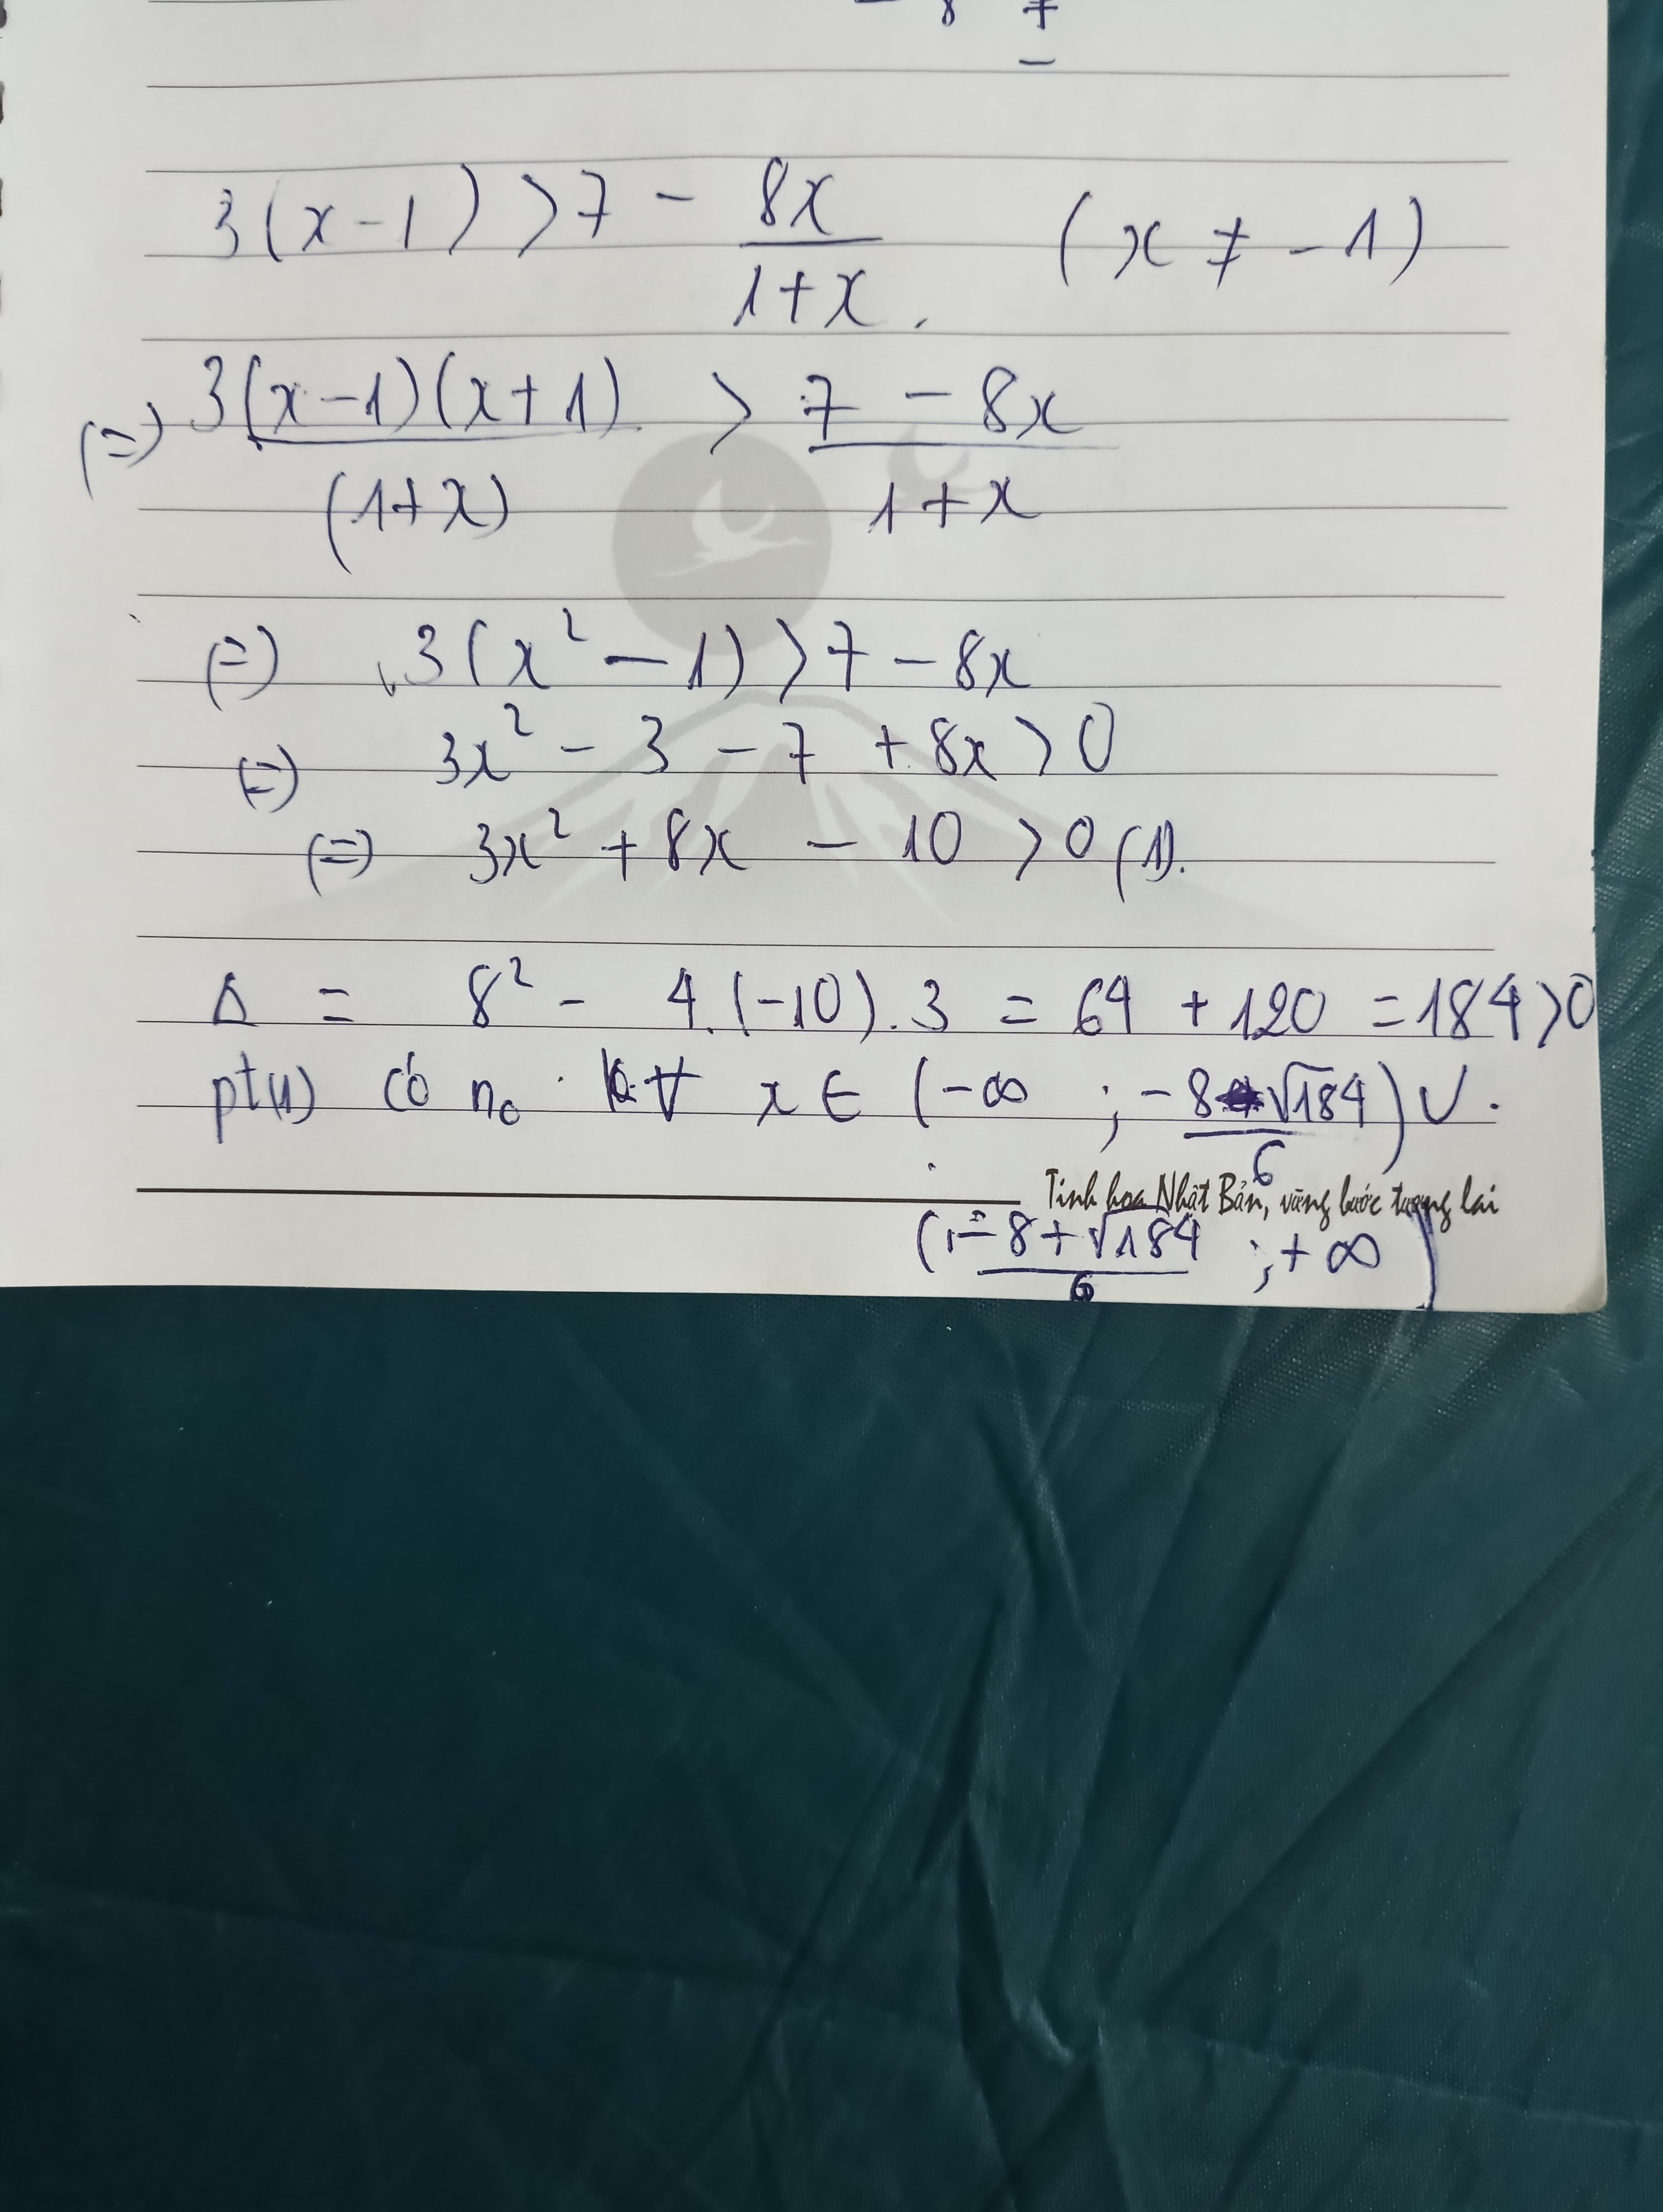 3(x-1) > 7 - 8x/(1+x). (x ≠ -1)
(=) 3(x-1)(x+1)/(1+x) > (7 - 8x)/(1+x)
(=) 3(x² - 1) > 7 - 8x
(=) 3x² - 3 - 7 + 8x > 0
(=) 3x² + 8x - 10 > 0 (1).
Δ = 8² - 4.(-10).3 = 64 + 120 = 184 > 0
pt(1) có n₀ ∀ x ∈ (-∞ ; (-8-√184)/6) ∪
Tinh hoa Nhật Bản, vững bước tương lai
((-8+√184)/6 ; +∞)